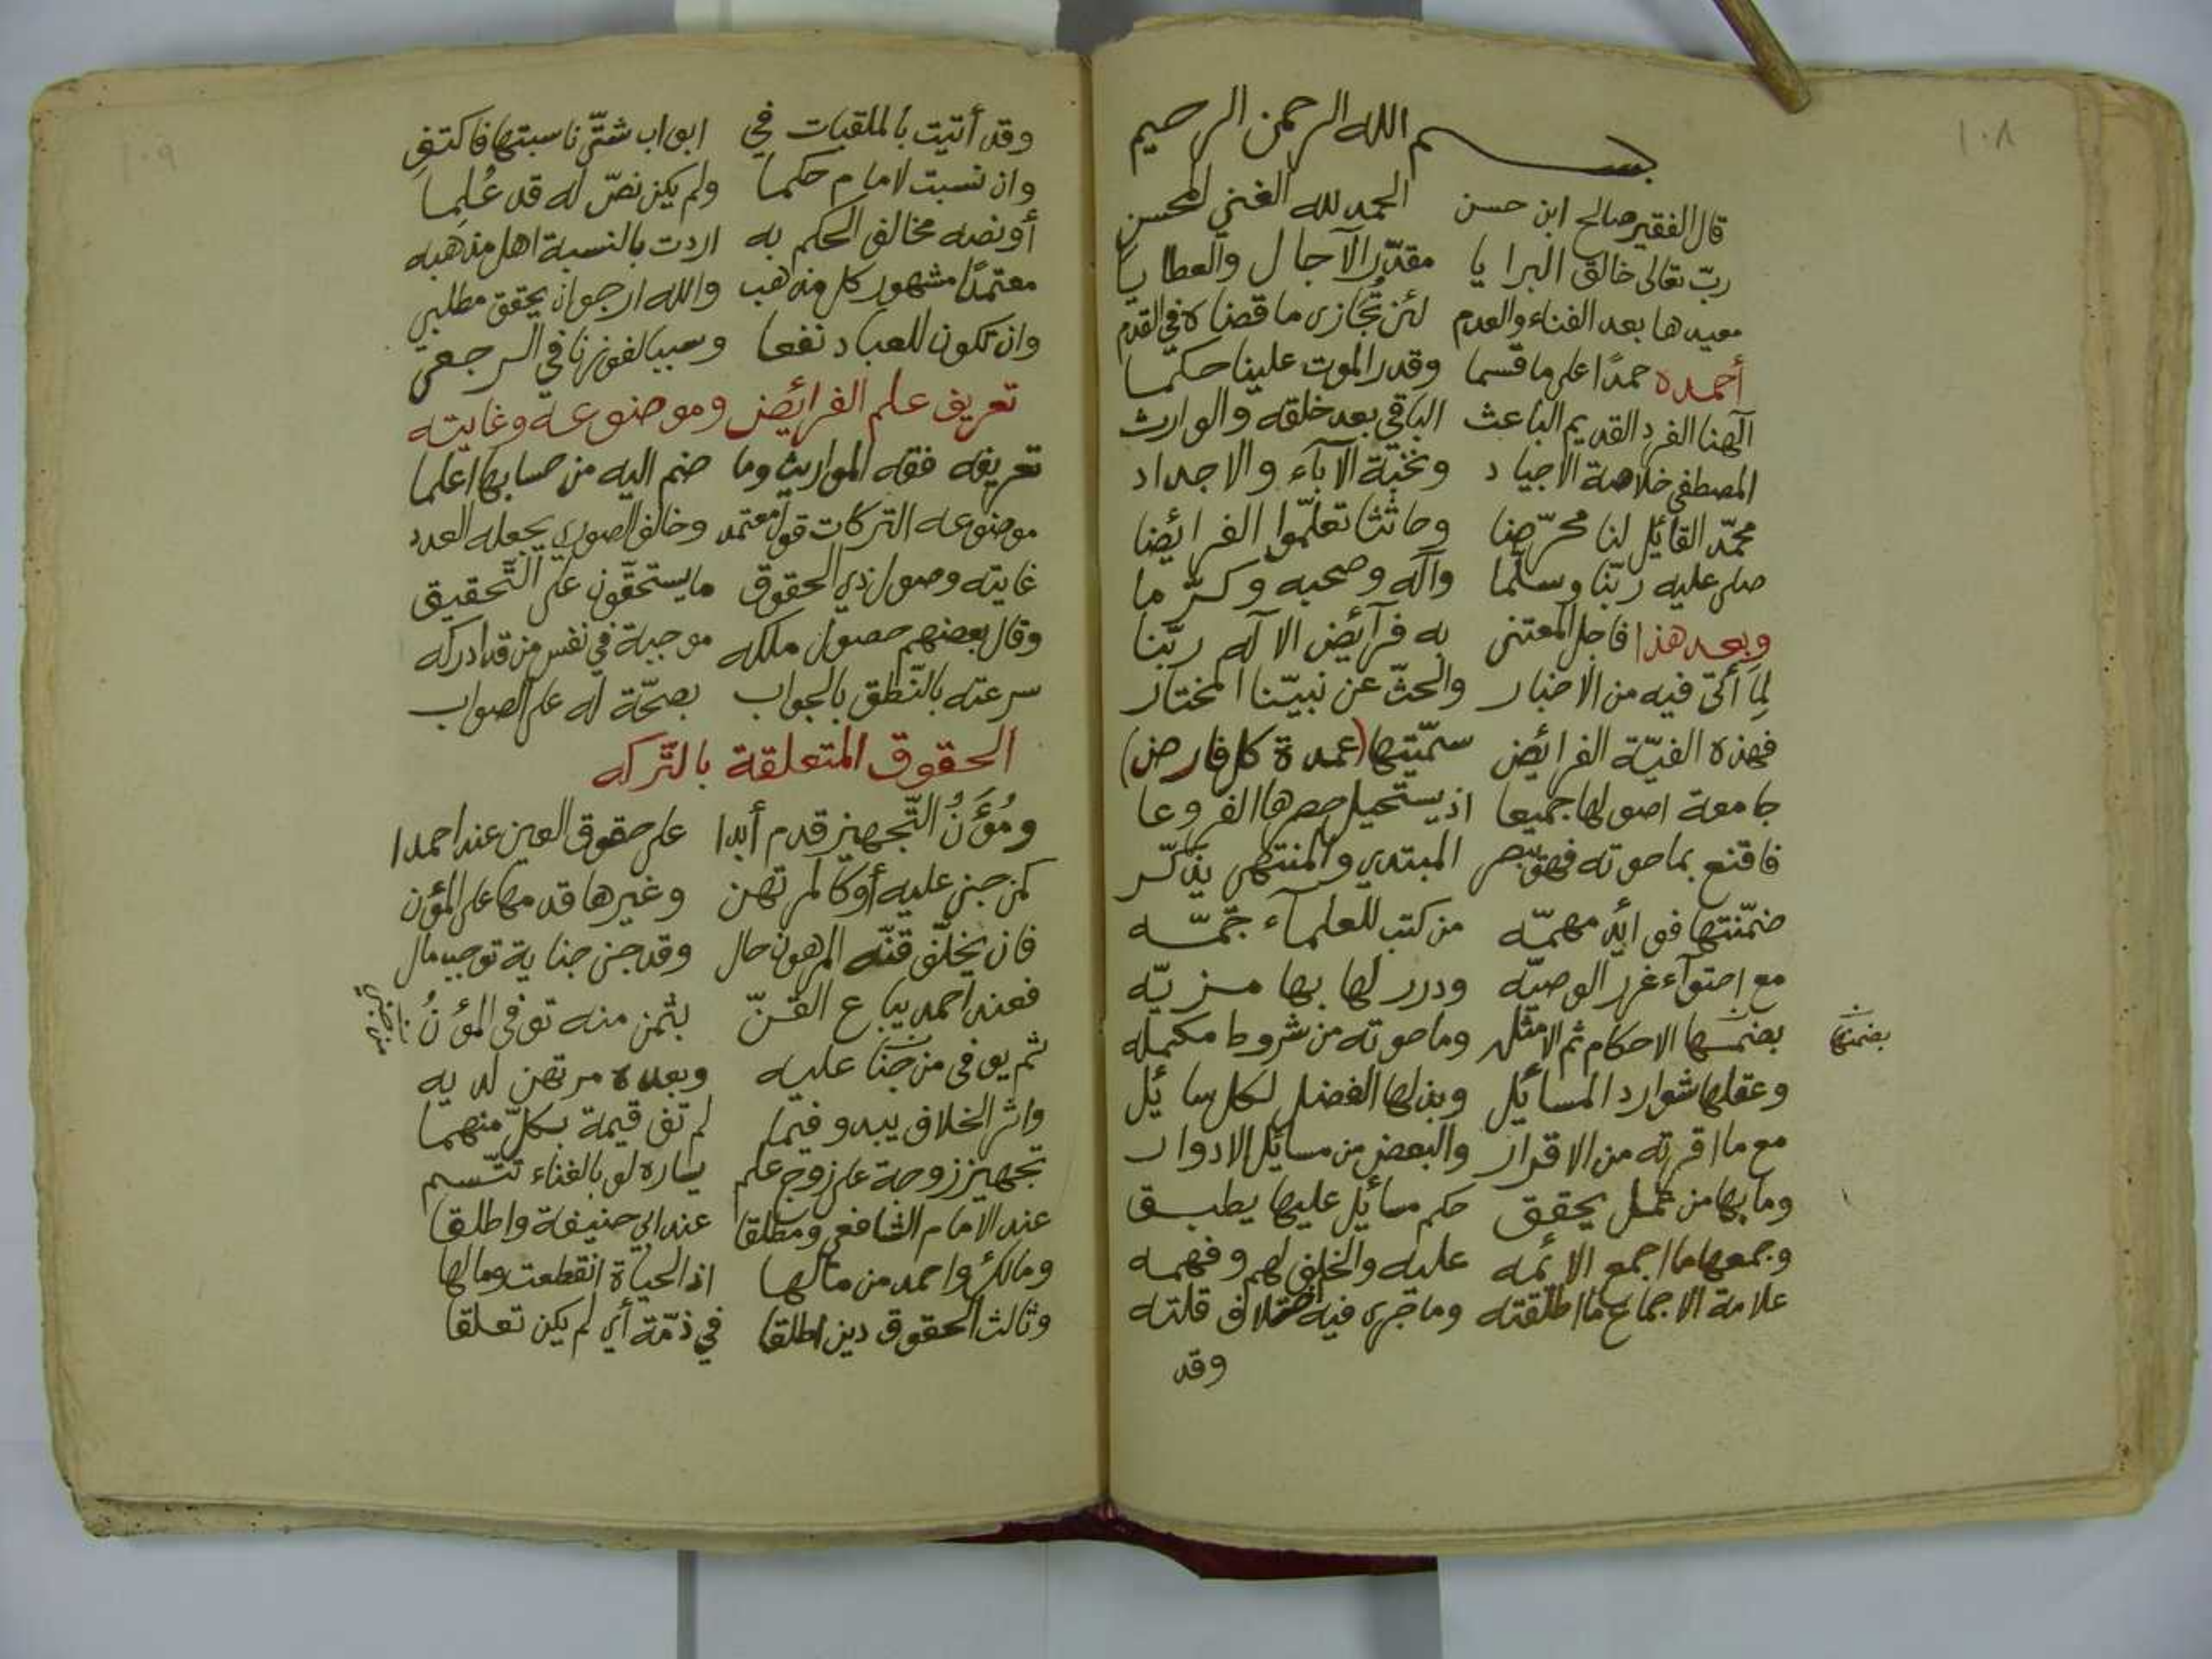 ١٠٨
بسم الله الرحمن الرحيم
قال الفقير صالح ابن حسن الحمد لله الغني المحسن
ربّ تعالى خالق البرايا مقدّر الآجال والعطايا
معيدها بعد الفناء والعدم لئن تُجازى ما قضاه في القدم
أحمده حمدًا على ما قسما وقدر الموت علينا حكما
آلهنا الفرد القديم الباعث الباقي بعد خلقه والوارث
المصطفى خلاصة الاجياد ونخبّة الآباء والاجداد
محمّد القائل لنا محرّضا وحاثثا تعلّموا الفرائضا
صلى عليه ربّنا وسلّما وآله وصحبه وكرّما
وبعد هذا فاجل المعتنى به فرآئض الاآله ربّنا
لِمَا أتى فيه من الاخبار والحثّ عن نبيّنا المختار
فهذه الفيّة الفرائض سمّيتها (عمدة كل فارض)
جامعة اصولها جميعا اذ يستحيل حصرها الفروعا
فاقنع بما حوته فهو يبصر المبتدي والمنتهى يذكّر
ضمّنتها فوائد مهمّه من كتب للعلمآء جمّه
مع احتوآء غرر الوصيّه ودرر لها بها مزيّه
بضمنها الاحكام ثم الامثله وما حوته من شروط مكمله
بضمنها
وعقلها شوارد المسائل وبذلها الفضل لكل سائل
مع ما اقرته من الاقرار والبعض من مسائل الادوار
وما بها من عمل يحقق حكم مسائل عليها يطبق
وجمعها ما اجمع الائمه عليه والخلف لهم وفهمه
علامة الاجماع ما اطلقته وما جرى فيه اختلاف قلته
وقد
١٠٩
وقد أتيت بالملقبات في ابواب شتّى ناسبتها فاكتفى
وان نسبت لامام حكما ولم يكن نصّ له قد عُلِما
أو نصه مخالف الحكم به اردت بالنسبة اهل مذهبه
معتمدًا مشهور كل مذهب والله ارجو ان يحقق مطلبي
وان تكون للعباد نفعا وسببا لفوزنا في الرجعى
تعريف علم الفرائض وموضوعه وغايته
تعريفه فقه المواريث وما ضم اليه من حسابها اعلما
موضوعه التركات قول معتمد وخالف الصوري بجعله العدد
غايته وصول ذي الحقوق ما يستحقّون على التّحقيق
وقال بعضهم حصول ملكه موجبة في نفس من قد ادركه
سرعته بالنّطق بالجواب بصحّة له على الصواب
الحقوق المتعلقة بالتّركه
ومُؤَنُ التّجهيز قدم أبدا على حقوق العين عند احمدا
كمن جنى عليه أو كالمرتهن وغيرها قدمها على المؤن
فان يخلّف قنّه المرهون حال وقد جنى جناية توجب مال
فعند احمد يباع القنّ بثمن منه توفى المؤنُ
ثم يوفى من جنا عليه وبعده مرتهن لديه
واثر الخلاف يبدو فيما لم تف قيمة بكلّ منهما
تجهيز زوجة على زوج علم يساره لو بالغناء تتّسم
عند الامام الشافعي ومطلقا عند ابي حنيفة واطلقا
ومالك واحمد من مالها اذ الحياة انقطعت ومالها
وثالث الحقوق دين اطلقا في ذمّة أي لم يكن تعلقا